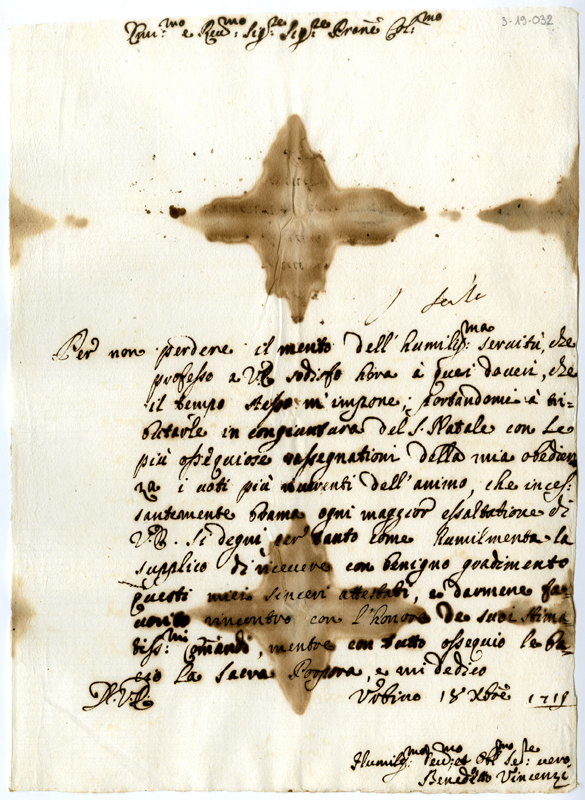 3-19-032
Em:mo e Reu:mo Sig:re Sig:re Prone Col:mo
Per non perdere il merito dell' humiliss:ma seruitù, che
professo a V.E. sodisfo hora à quei doueri, che
il tempo stesso m'impone; portandomi à tri-
butarle in congiuntura del S. Natale con le
più ossequiose rassegnationi della mia obedien
za i uoti più riuerenti dell'animo, che inces-
santemente brama ogni maggior essaltatione di
V.E. Si degni per tanto come humilmente la
supplico di riceuere con benigno gradimento
questi miei sinceri attestati, e darmene fa-
uorito rincontro con l'honore de suoi stima
tiss:mi Comandi, mentre con tutto ossequio le ba-
cio la Sacra Porpora, e mi dedico
D. V.E. Vrbino 18 Xbre 1719
Humiliss:mo Deu:mo et Obl:mo Se:re uero
Benedetto Vincenzi